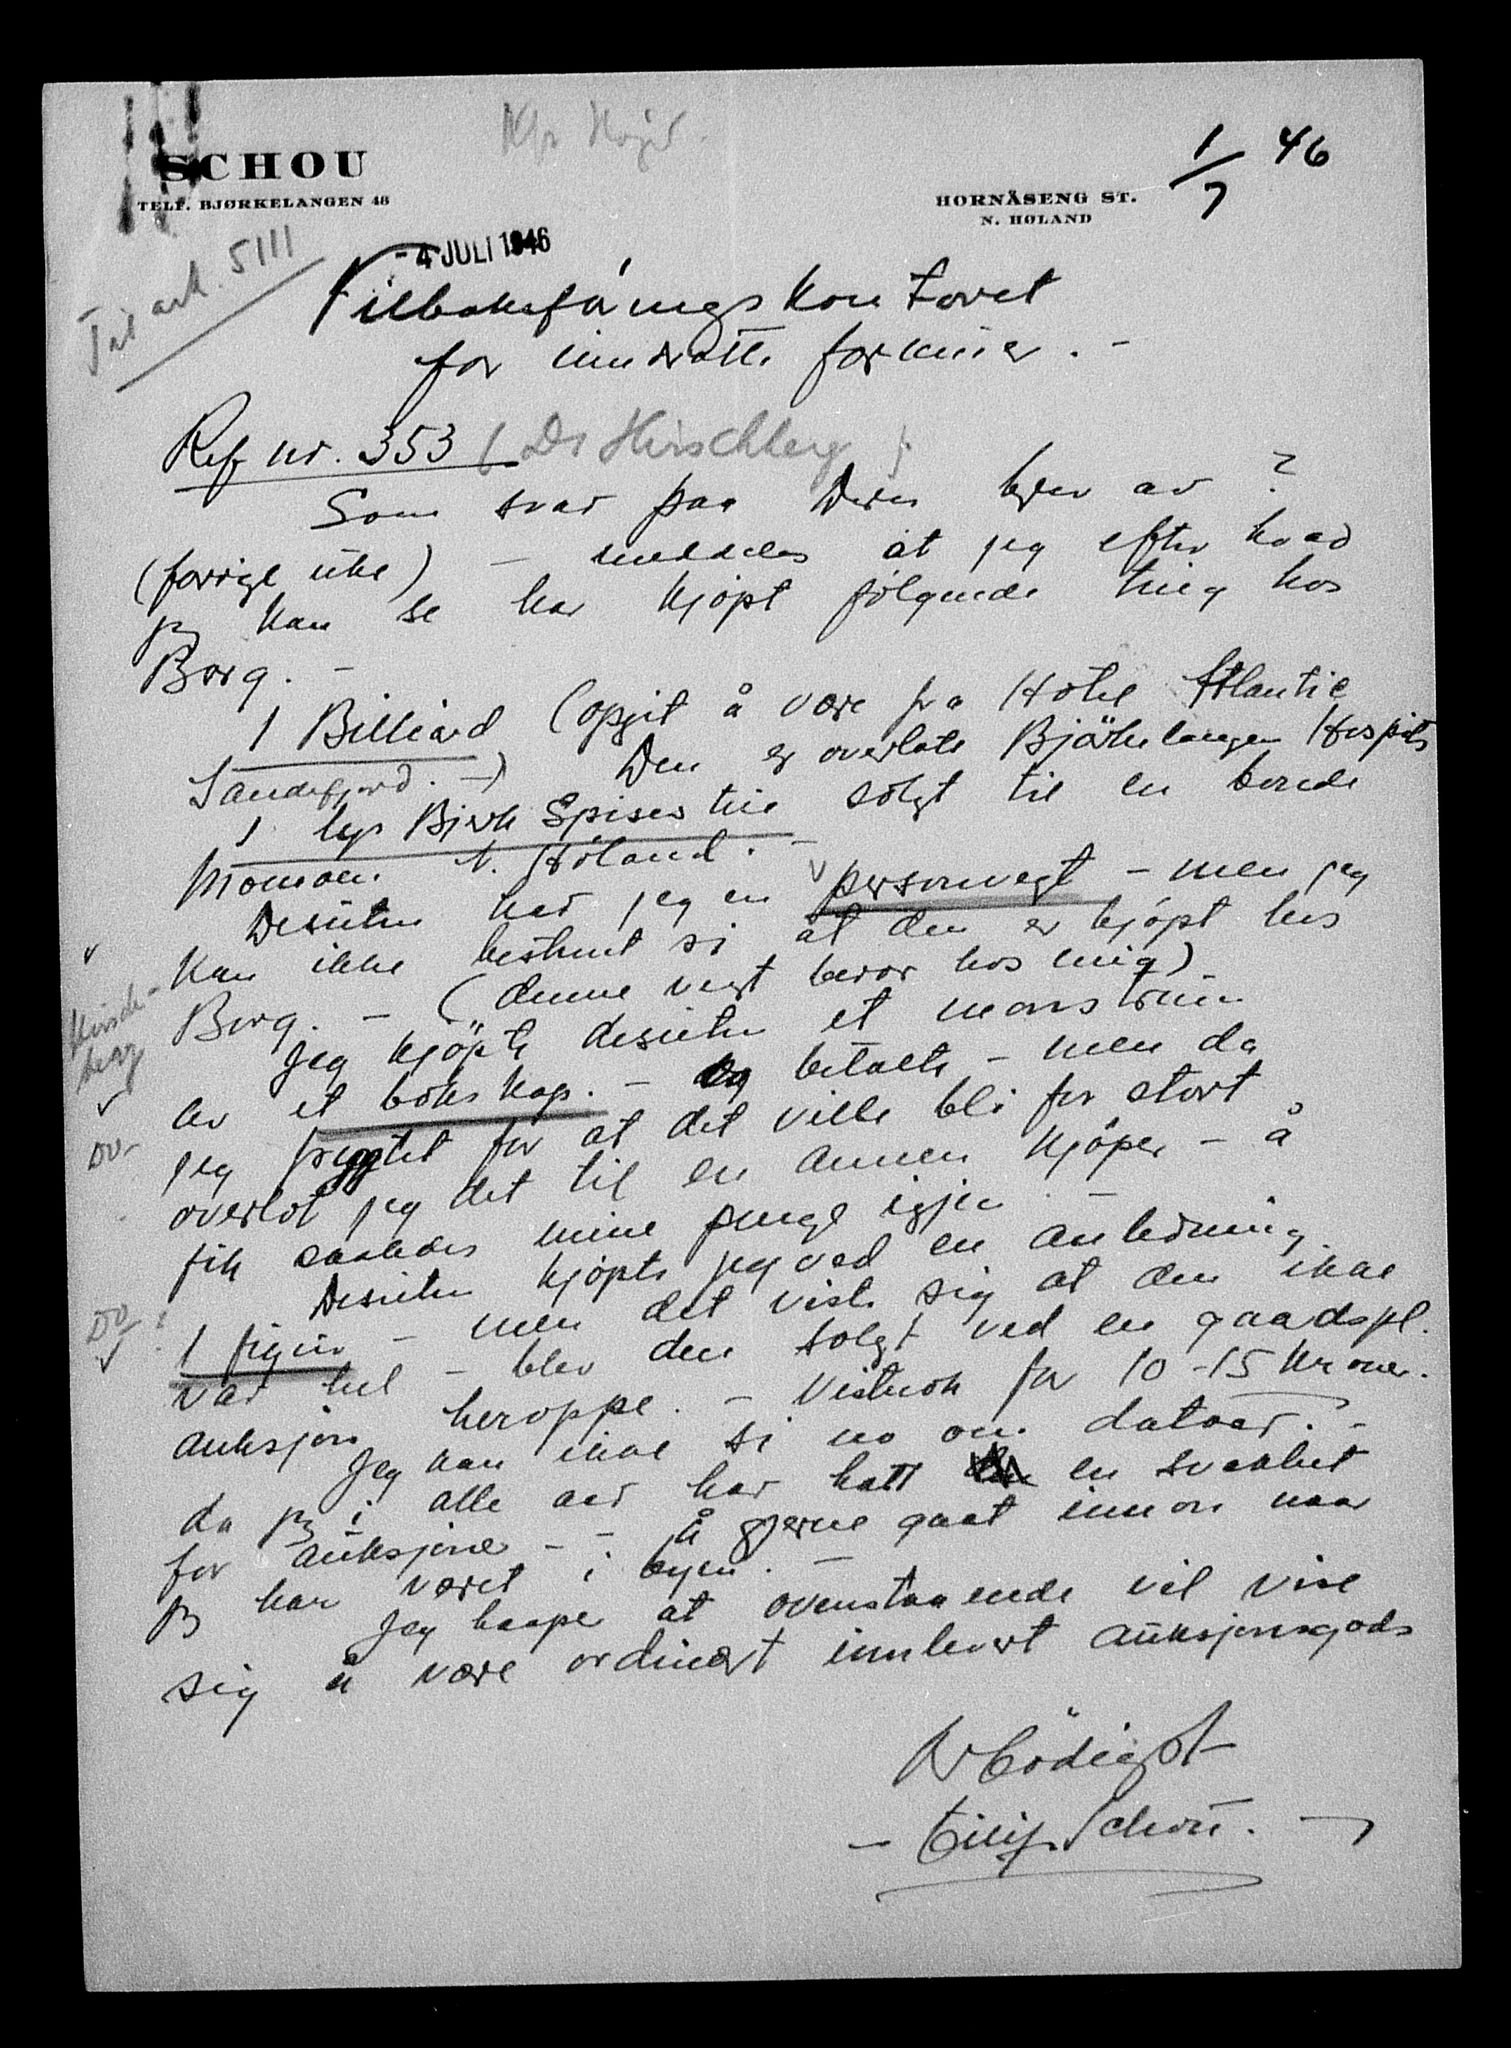 SCHOU
TELF. BJØRKELANGEN 48
HORNÅSENG ST.
N. HØLAND
1/7 46
- 4 JULI 1946
Til ark. 5111
Tilbakeføringskontoret
for inndratte formuer. -
Ref nr. 353 (Dr Hirschberg)
Som svar paa Deres brev av ?
(forrige uke) - meddeles at jeg efter hvad
jeg kan se har kjöpt følgende ting hos
Borg. -
1 Billiard (opgit å være fra Hotel Atlantic
Sandefjord. -) Den er overlatt Bjørkelangen Hospits
1 lys Bjerk Spisestue solgt til en bonde
Momoen N. Høland. -
Desuten har jeg en personvegt - men jeg
kan ikke bestemt si at den er kjøpt hos
Borg. - (denne vegt beror hos mig)
Hirsch-
berg
Jeg kjöpte desuten et monstrum
av et bokskap. - og betalte - men da
jeg frygtet for at det ville bli for stort
Do -
overlot jeg det til en annen kjöper - å
fik saaledes mine penge igjen. -
Desuten kjöpte jeg ved en anledning
Do
1 figur - men det viste sig at den ikke
var hel - blev den solgt ved en gaardspl.
auksjon heroppe. - Vistnok for 10 - 15 kroner.
Jeg kan ikke si no om datoer. -
da jeg i alle aar har hatt en svakhet
for auksjoner - - å gjerne gaat innom naar
jeg har været i byen. -
Jeg haaper at ovenstaaende vil vise
sig å være ordinært innlevert auksjonsgods
Ærbödigst
- Filip Schou. -